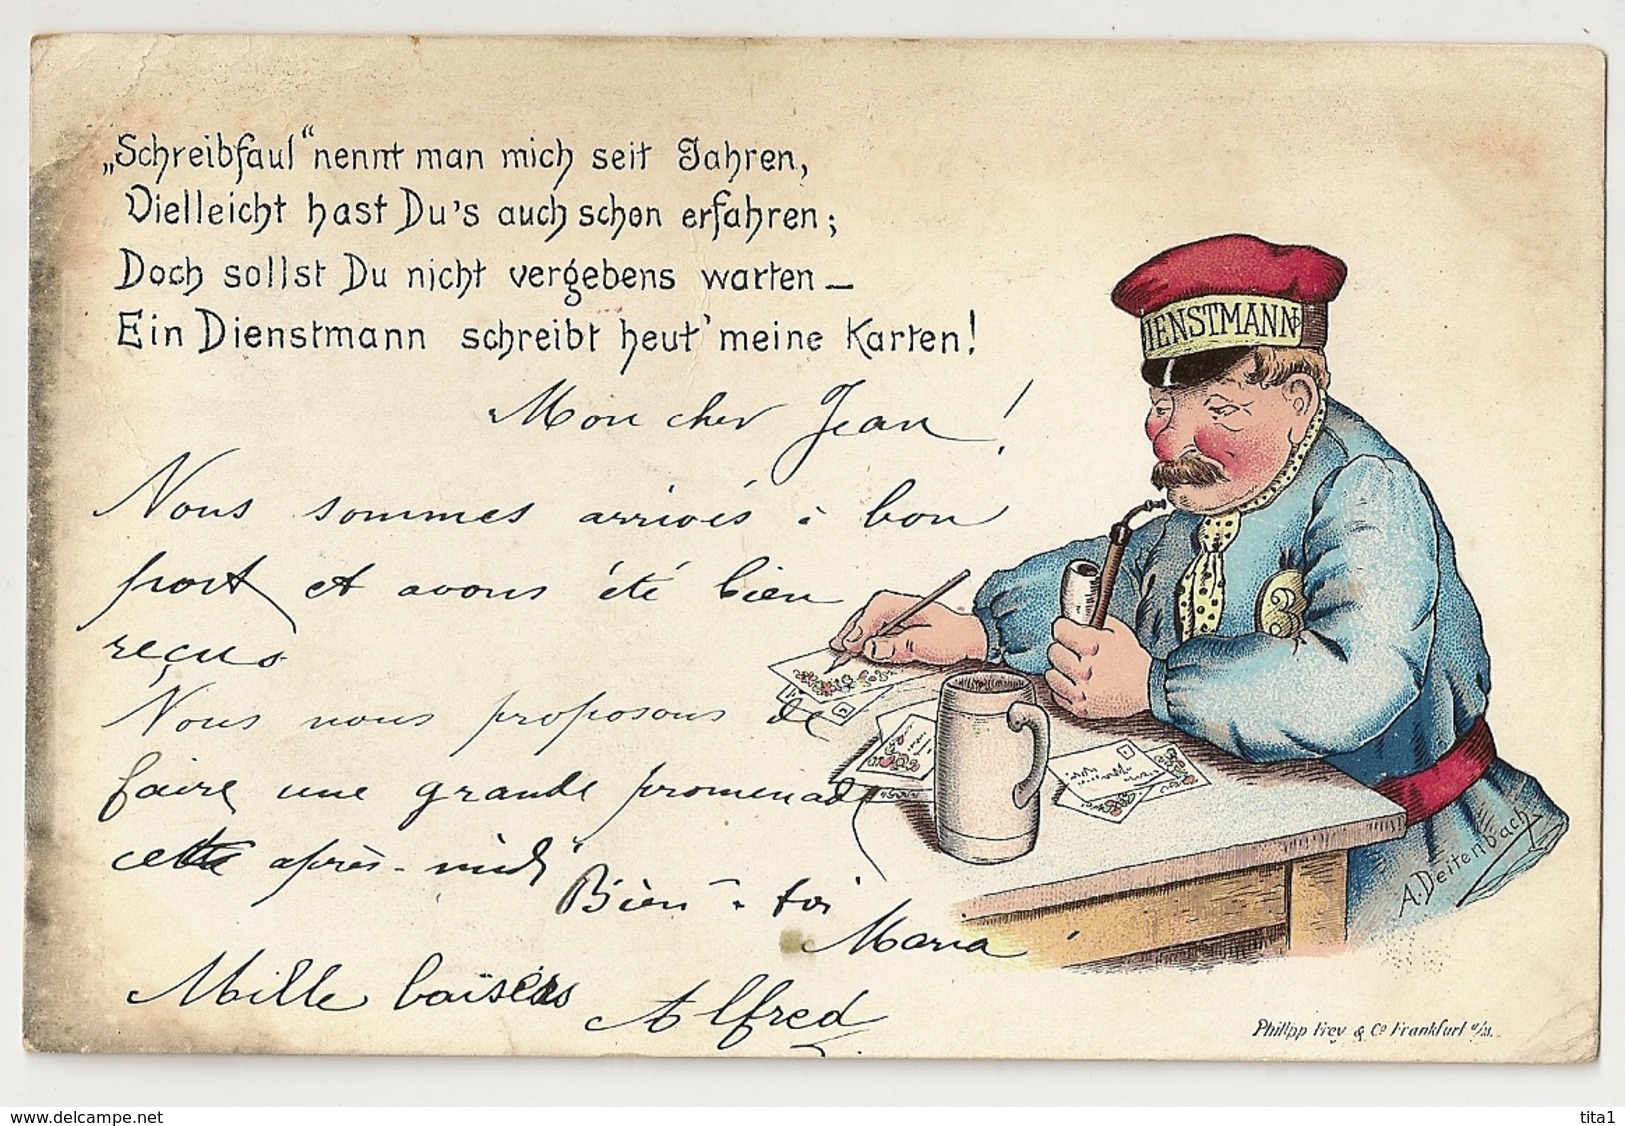 „Schreibfaul“ nennt man mich seit Jahren,
Vielleicht hast Du's auch schon erfahren;
Doch sollst Du nicht vergebens warten –
Ein Dienstmann schreibt heut' meine Karten!
DIENSTMANN
Mon cher Jean!
Nous sommes arrivés à bon
port et avons été bien
reçus
Nous nous proposons de
faire une grande promenade
cette après-midi
Bien à toi
Maria
Mille baisers Alfred
A. Deitenbach
Philipp Frey & Co Frankfurt a/M.
www.delcampe.net
tita1